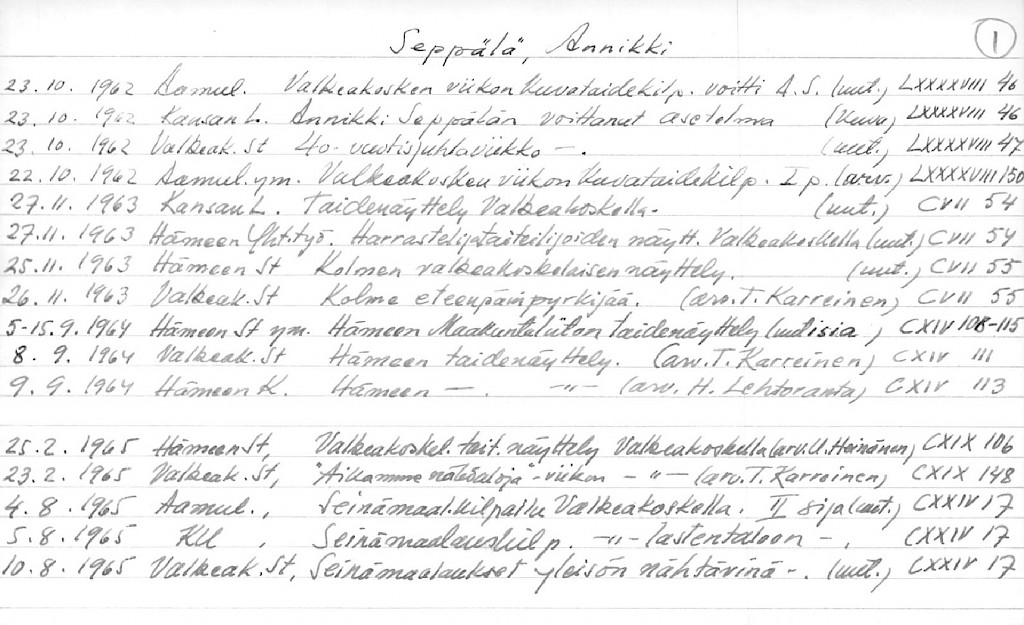 Seppälä, Annikki 1
23.10.1962 Aamul. Valkeakosken viikon kuvataidekilp. voitti A.S. (uut.) LXXXXVIII 46
23.10.1962 Kansan L. Annikki Seppälän voittanut asetelma (kuva) LXXXXVIII 46
23.10.1962 Valkeak. St 40-vuotisjuhlaviikko - . (uut.) LXXXXVIII 47
22.10.1962 Aamul. ym. Valkeakosken viikon kuvataidekilp. I p. (arv.) LXXXXVIII 150
27.11.1963 Kansan L. Taidenäyttely Valkeakoskella- (uut.) CVII 54
27.11.1963 Hämeen Yht.työ. Harrastelijataiteilijoiden näytt. Valkeakoskella (uut.) CVII 54
25.11.1963 Hämeen St Kolmen valkeakoskelaisen näyttely. (uut.) CVII 55
26.11.1963 Valkeak. St Kolme eteenpäinpyrkijää. (arv. T. Karreinen) CVII 55
5-15.9.1964 Hämeen St ym. Hämeen Maakuntaliiton taidenäyttely (uutisia) CXIV 108-115
8.9.1964 Valkeak. St Hämeen taidenäyttely. (arv. T. Karreinen) CXIV 111
9.9.1964 Hämeen K. Hämeen - . -"- (arv. H. Lehtoranta) CXIV 113
25.2.1965 Hämeen St, Valkeakoskel. tait. näyttely Valkeakoskella (arv. U. Heinänen) CXIX 106
23.2.1965 Valkeak. St, "Aikamme näköaloja"-viikon - "- (arv. T. Karreinen) CXIX 148
4.8.1965 Aamul., Seinämaal.kilpailu Valkeakoskella. II sija (uut.) CXXIV 17
5.8.1965 KU, Seinämaalauskilp. -"- lastentaloon - . CXXIV 17
10.8.1965 Valkeak. St, Seinämaalaukset yleisön nähtävinä - . (uut.) CXXIV 17